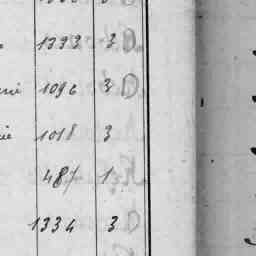 1393 3
1096 3
1018 3
487 1
1334 3